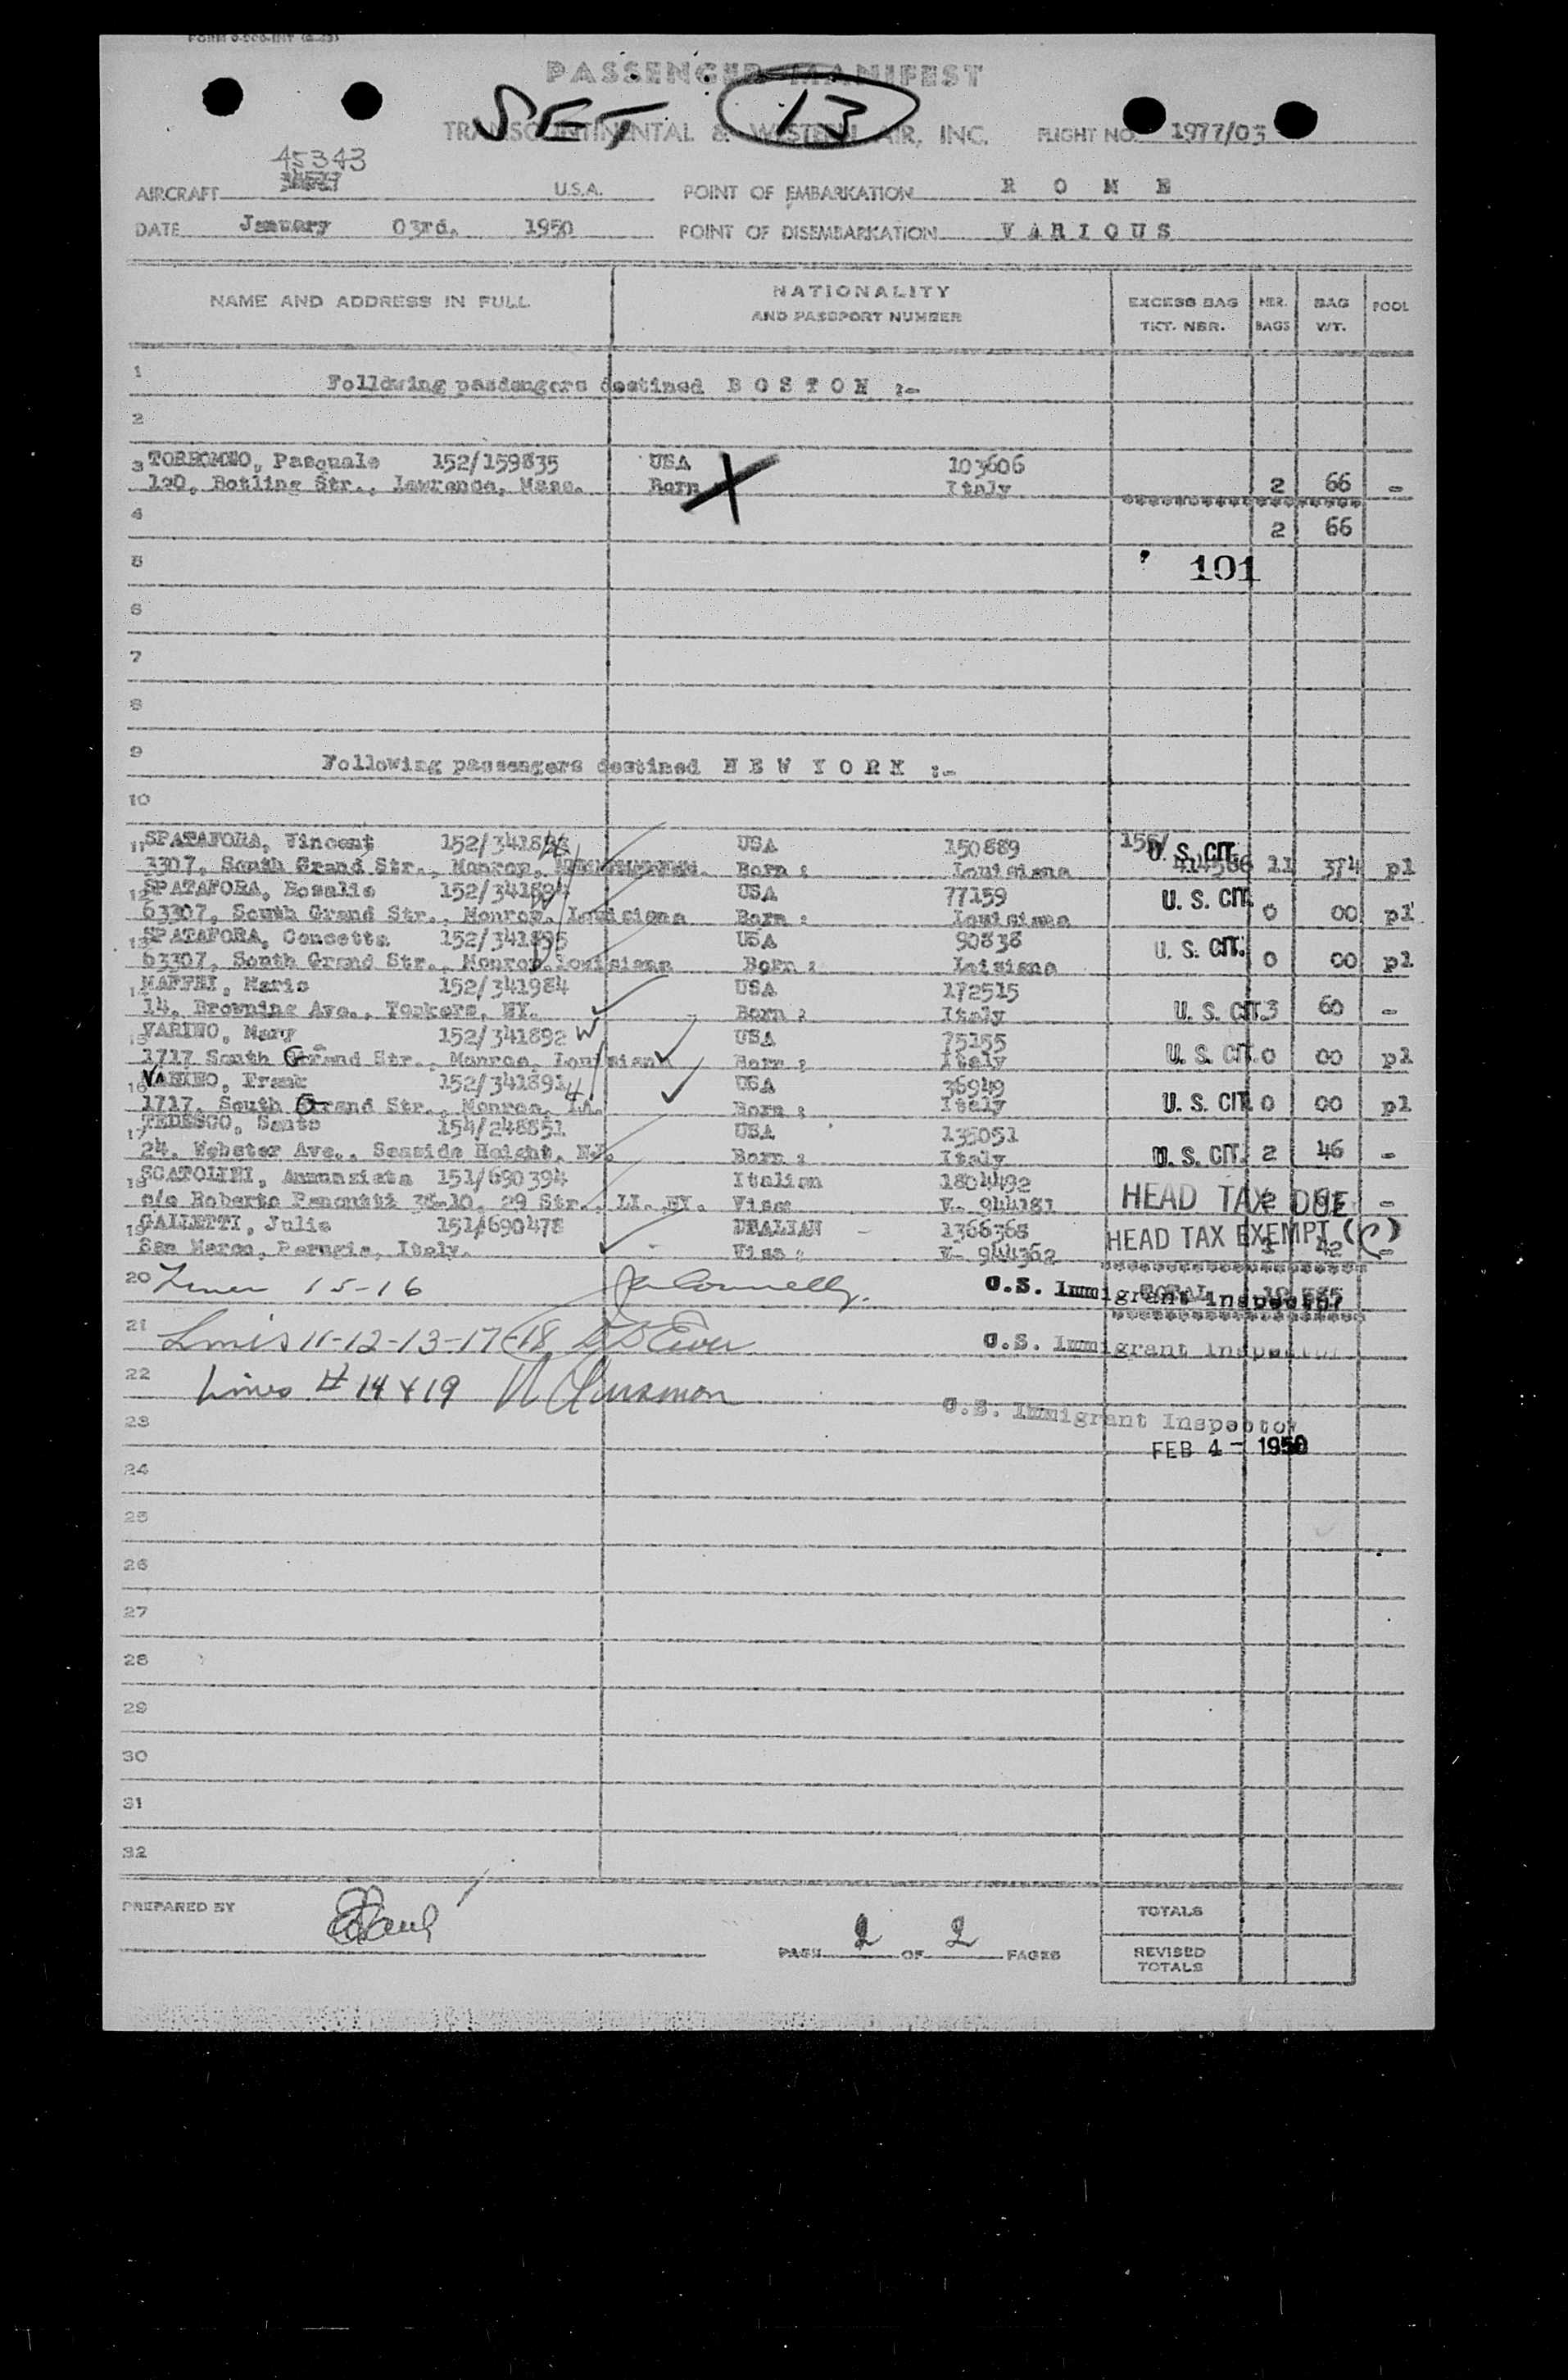 PASSENGER MANIFEST
SET 13
TRANSCONTINENTAL & WESTERN AIR, INC. FLIGHT NO. 1977/03
45343
AIRCRAFT U.S.A. POINT OF EMBARKATION R O M E
DATE January 03rd. 1950 POINT OF DISEMBARKATION V A R I O U S
NAME AND ADDRESS IN FULL NATIONALITY AND PASSPORT NUMBER EXCESS BAG TKT. NBR. NBR. BAGS BAG WT. POOL
1 Following passengers destined B O S T O N :-
2
3 Pasquale 152/159835 USA 103606
120, Str., Lawrence, Mass. Born Italy 2 66 -
4 2 66
5 101
6
7
8
9 Following passengers destined N E W Y O R K :-
10
11 SPATAFORA, Vincent USA 150889 U. S. CIT.
3307, South Grand Str., Monroe, Born : Louisiana 11 374 pl
12 SPATAFORA, Rosalie 152/341894 USA 77159 U. S. CIT.
63307, South Grand Str., Monroe, Louisiana Born : Louisiana 0 00 pl
13 SPATAFORA, Concetta 152/341895 USA 90838 U. S. CIT.
63307, South Grand Str., Monroe, Louisiana Born : Loisiana 0 00 pl
14 MAFFEI, Mario 152/341984 USA 172515
14, Browning Ave., Yonkers, NY. Born : Italy U. S. CIT. 3 60 -
15 VARINO, Mary 152/341892 W USA 75155
1717 South Grand Str., Monroe, Louisiana Born : Italy U. S. CIT. 0 00 pl
16 VARINO, Frank 152/341891 USA 36949
1717, South Grand Str., Monroe, LA. Born : Italy U. S. CIT. 0 00 pl
17 TEDESCO, Santo 154/248851 USA 135051
24, Webster Ave., Seaside Height, NJ. Born : Italy U. S. CIT. 2 46 -
18 SCATOLINI, Annunziata 151/690394 Italian 1804492
c/o Roberto 38-10, 29 Str., LI. NY. Visa V- 944181 HEAD TAX DUE -
19 GALLETTI, Julia 151/690478 ITALIAN 1366368
San Marco, Perugia, Italy. Visa : V- 944362 HEAD TAX EXEMPT (C) 42 -
20 15-16 U.S. Immigrant Inspector TOTAL
21 Lines 11-12-13-17-18 U.S. Immigrant Inspector
22 Lines # 14 & 19
U.S. Immigrant Inspector
23 FEB 4 - 1950
24
25
26
27
28
29
30
31
32
PREPARED BY TOTALS
PAGE 2 OF 2 PAGES REVISED TOTALS